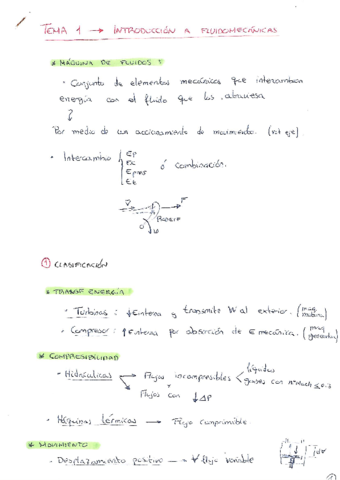 TEMA 1 → INTRODUCCIÓN A FLUIDOMECÁNICAS
* MÁQUINA DE FLUIDOS:
· Conjunto de elementos mecánicos que intercambian
energía con el fluido que los atraviesa
Por medio de un accionamiento de movimiento. (rot eje)
· Intercambio { Ep
Ec
Epres
Et
ó combinación.
V F
Rodete
ω
① CLASIFICACIÓN
* TRANSF ENERGÍA
· Turbinas: ↓ Einterna y transmite W al exterior. (maq
motriz)
· Compresor: ↑ Einterna por absorción de E mecánica. (maq
generatriz)
* COMPRESIBILIDAD
· Hidráulicas → Flujos incompresibles < líquidos
gases con nº Mach ≤ 0.3
Flujos con ↓ΔP
· Máquinas térmicas → Flujo compresible
* MOVIMIENTO
· Desplazamiento positivo → ∀ flujo variable